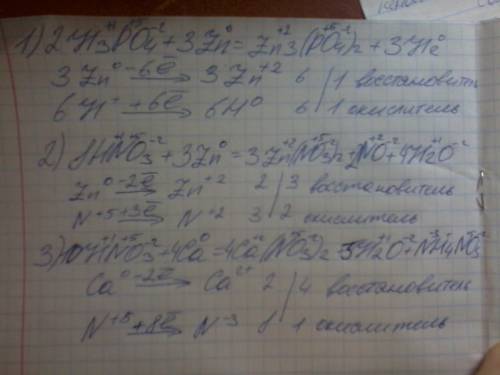 1) 2H₃⁺¹P⁺⁵O₄⁻² + 3Zn⁰ = Zn₃⁺²(P⁺⁵O₄⁻²)₂ + 3H₂⁰
3Zn⁰ -6e̅→ 3Zn⁺² 6 | 1 восстановитель
6H⁺ +6e̅→ 6H⁰ 6 | 1 окислитель
2) 8H⁺¹N⁺⁵O₃⁻² + 3Zn⁰ = 3Zn⁺²(N⁺⁵O₃⁻²)₂ + 2N⁺²O⁻² + 4H₂⁺¹O⁻²
Zn⁰ -2e̅→ Zn⁺² 2 | 3 восстановитель
N⁺⁵ +3e̅→ N⁺² 3 | 2 окислитель
3) 10H⁺¹N⁺⁵O₃⁻² + 4Ca⁰ = 4Ca⁺²(N⁺⁵O₃⁻²)₂ + 3H₂⁺¹O⁻² + N⁻³H₄NO₃
Ca⁰ -2e̅→ Ca²⁺ 2 | 4 восстановитель
N⁺⁵ +8e̅→ N⁻³ 8 | 1 окислитель